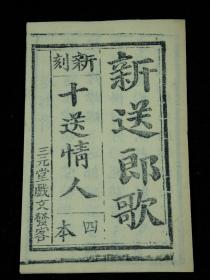 新送郎歌
新刻
十送情人
四本
三元堂戲文發客